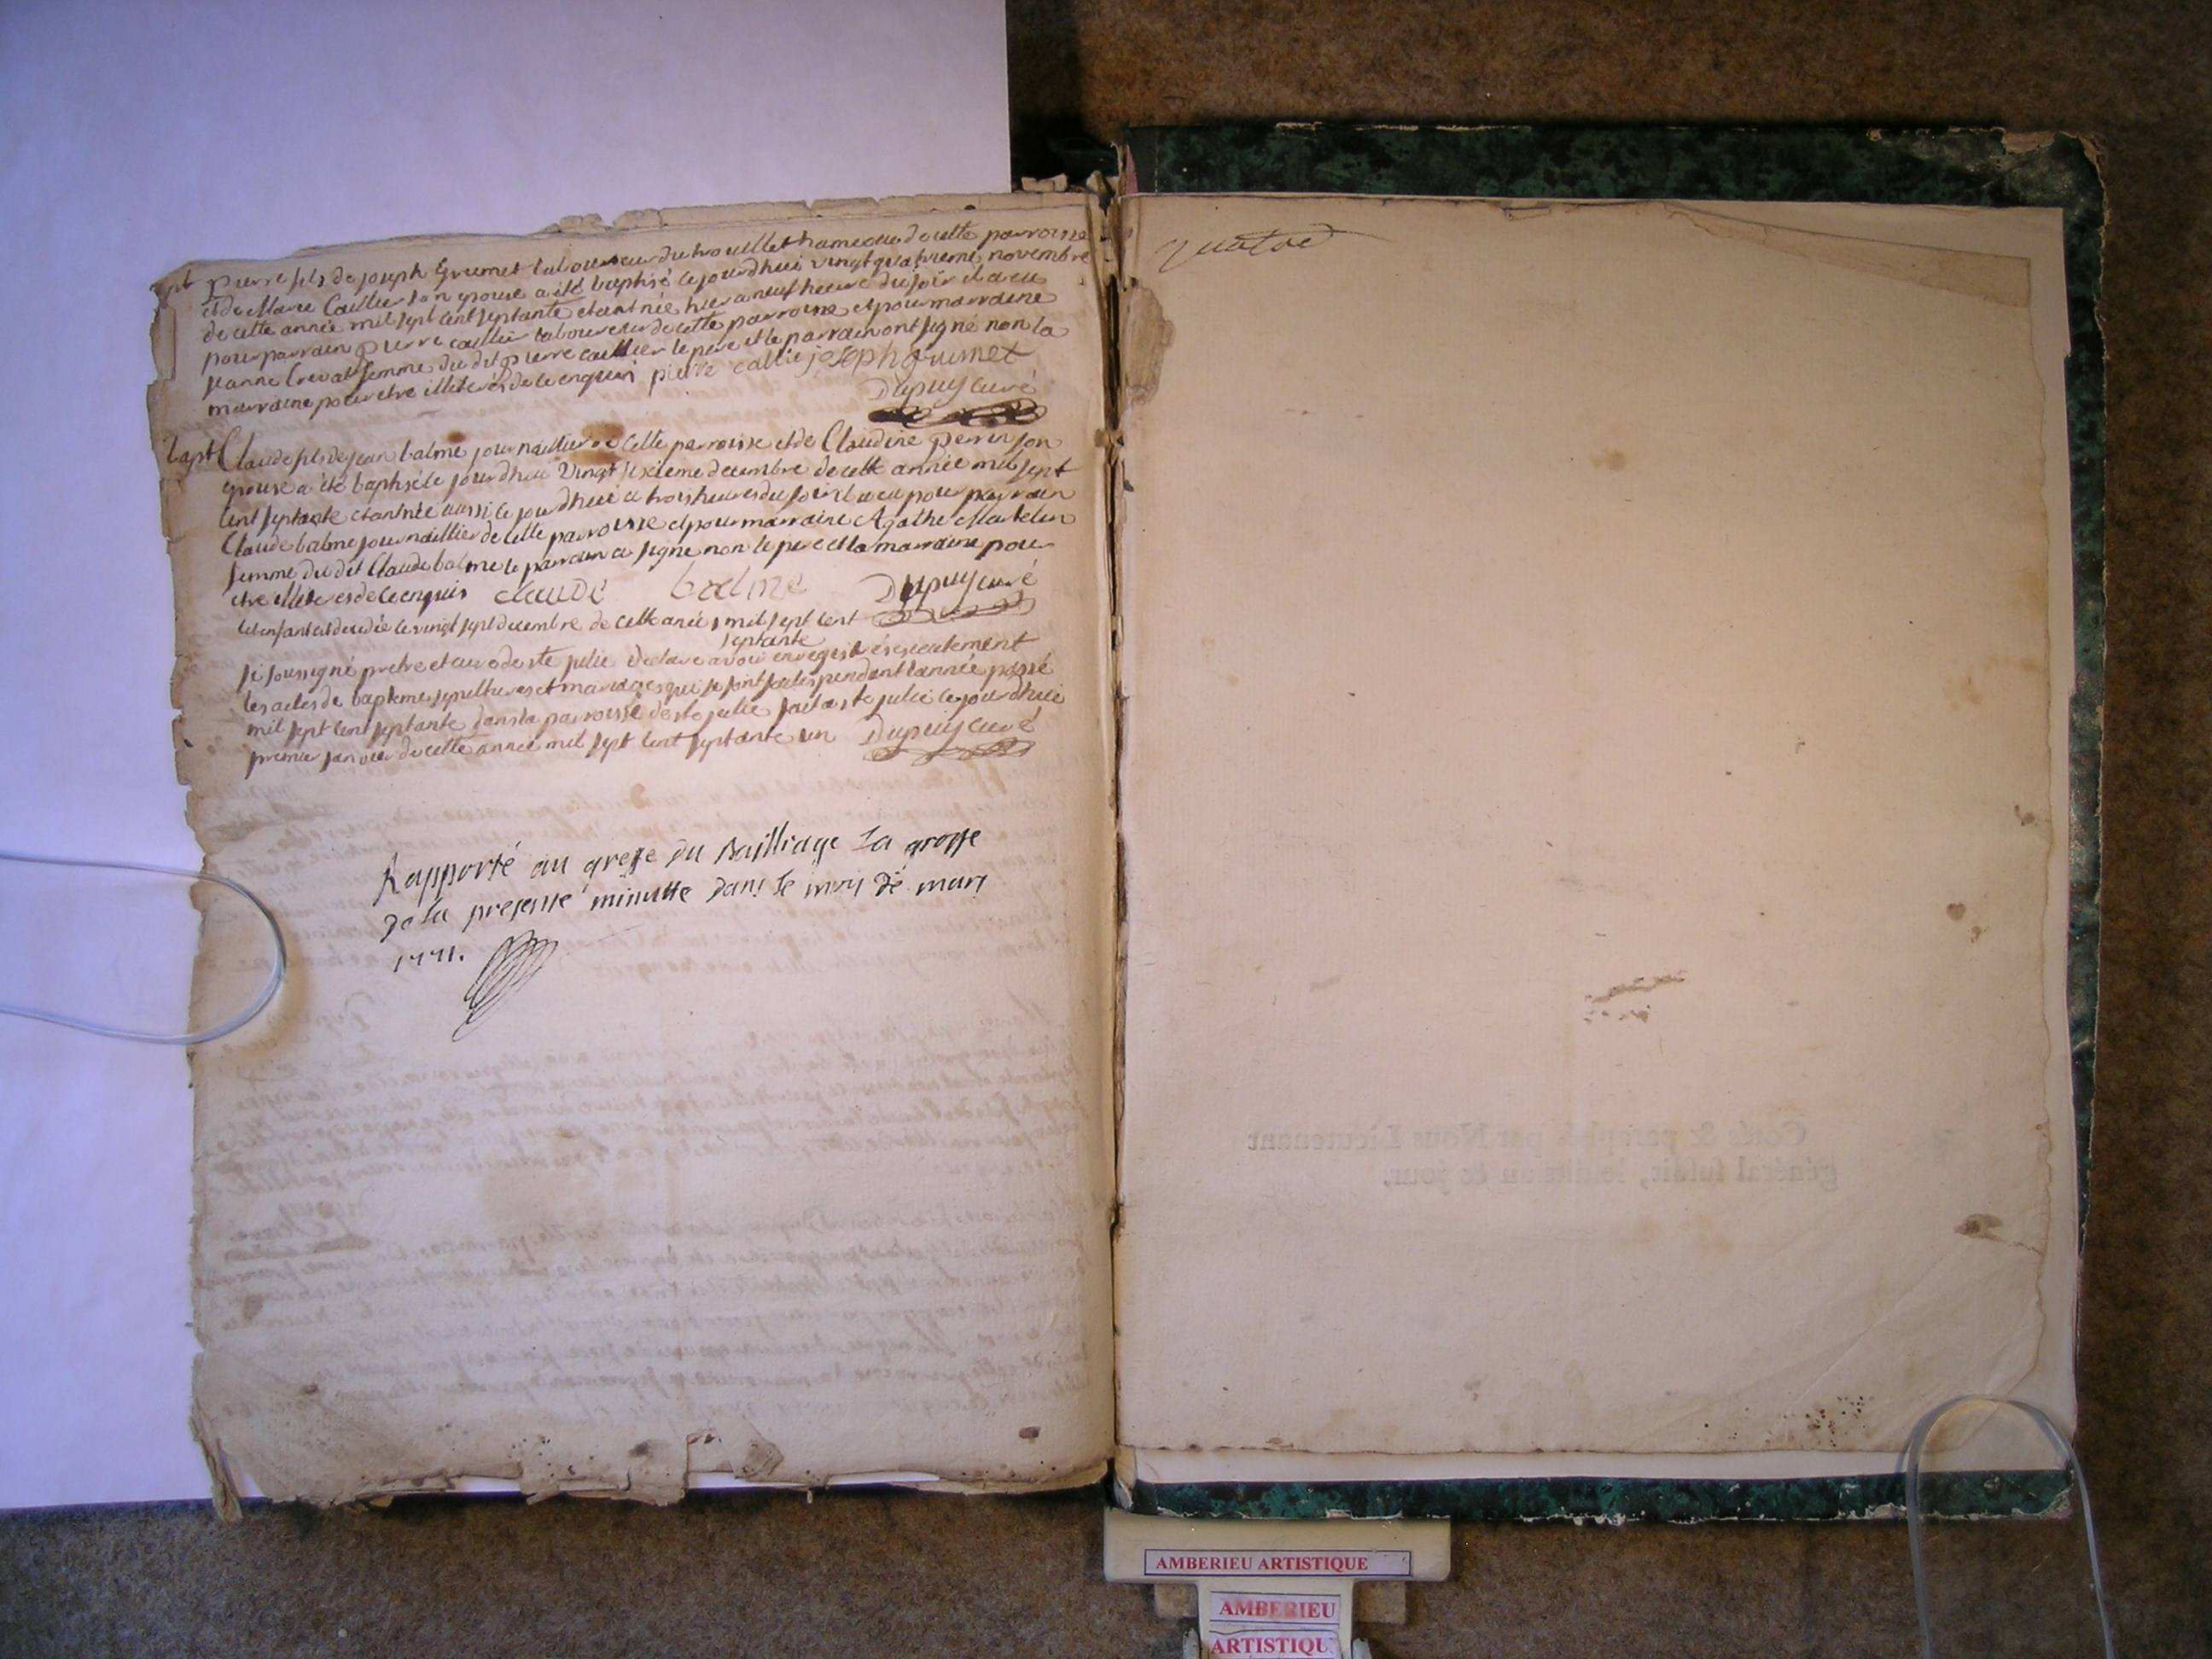 bapt pierre fils de joseph Grumet laboureur du trouillet hameau de cette parroisse
et de Marie Caillier son epouse a été baptisé ce jourdhui vingt quatrieme novembre
de cette année mil sept cent septante etant née hier a neuf heure du soir il a eu
pour parrain pierre caillier laboureur de cette parroisse et pour marraine
jeanne femme du dit pierre caillier le pere et le parrain ont signé non la
marraine pour etre illiterés de ce enquis pierre callie joseph grumet
Dupuy curé
bapt Claude fils de jean balme journaillier de cette parroisse et de Claudine perrin son
epouse a été baptisé le jourdhui vingt sixieme decembre de cette année mil sept
cent septante etant née aussi ce jourdhui a trois heures du soir il a eu pour parrain
Claude balme journaillier de cette parroisse et pour marraine Agathe
femme du dit Claude balme le parrain a signé non le pere et la marraine pour
etre illiteres de ce enquis claude balme Dupuy curé
cet enfant est decedé le vingt sept decembre de cette anée mil sept cent
septante
je soussigné pretre et curé de ste julie declare avoir enregistré
les actes de bapteme sepultures et mariages qui se sont faites pendant l'année passé
mil sept cent septante dans la parroisse de ste julie fait a ste julie ce jourdhui
premier janvier de cette année mil sept cent septante un Dupuy curé
Rapporté au greffe du Bailliage La grosse
de la presente minutte dans le mois de mars
1771.
Cotté & paraphé par Nous Lieutenant
général susdit, lesdits an & jour.
AMBERIEU ARTISTIQUE
AMBERIEU
ARTISTIQU